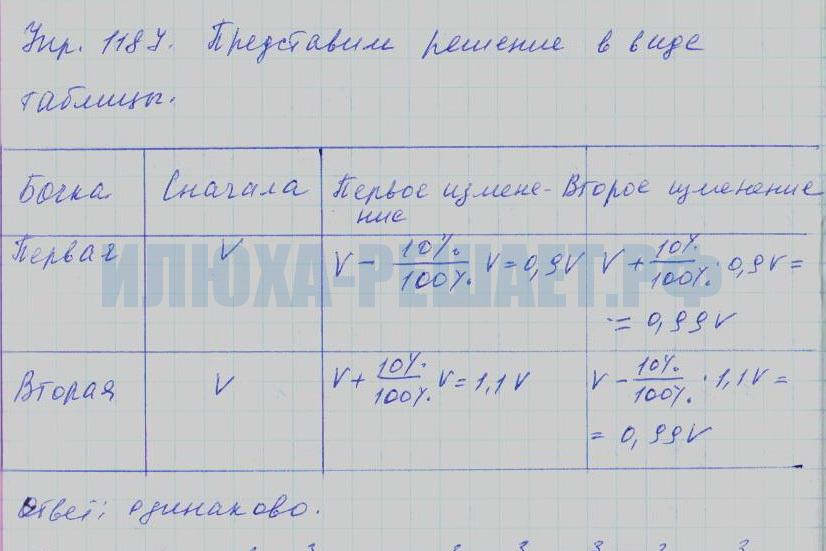 Упр. 1187. Представим решение в виде
таблицы.
Бочка Сначала Первое измене- Второе изменение
ние
Первая V V - 10%/100% V = 0,9V V + 10%/100% · 0,9V =
= 0,99V
ИЛЮХА-РЕШАЕТ.РФ
Вторая V V + 10%/100% V = 1,1V V - 10%/100% · 1,1V =
= 0,99V
Ответ: одинаково.